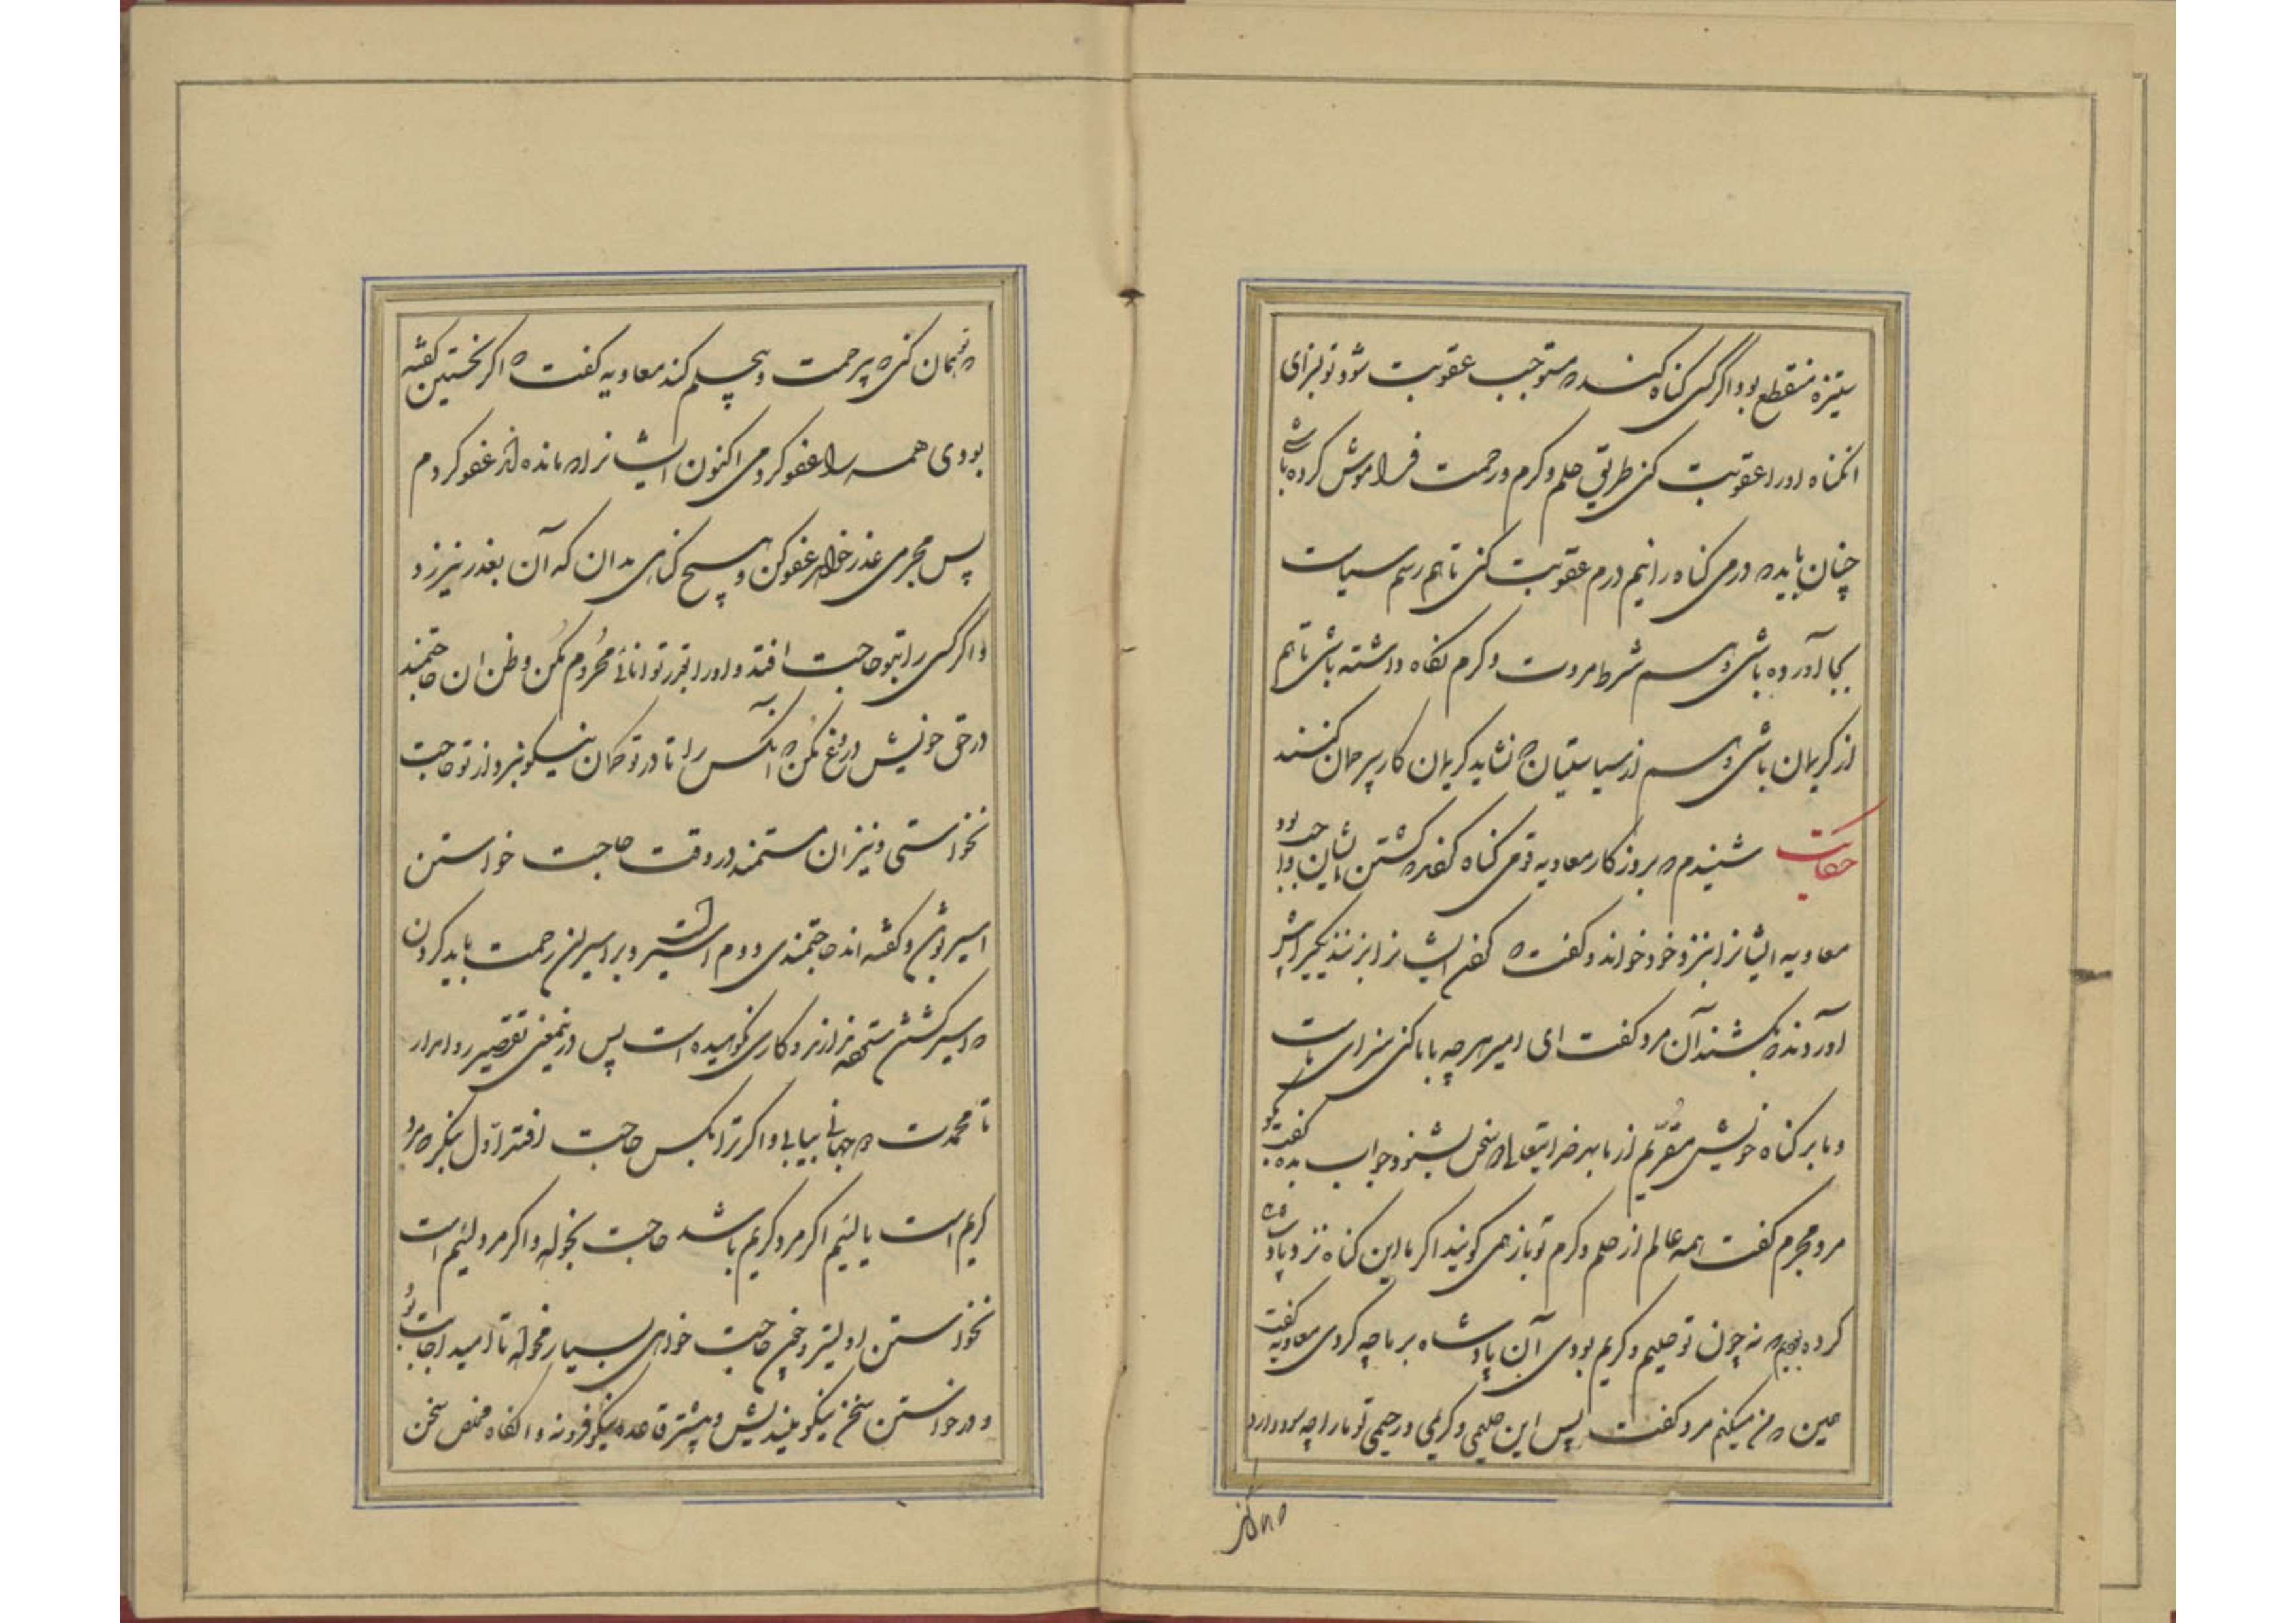 ستیزه منقطع بود و اگر کسی گناه کند که مستوجب عقوبت شود و تو بسزای
آنگناه او را عقوبت کنی طریق حلم و کرم و رحمت فراموش کرده باشی
چنان باید که درمی گناه را نیم درم عقوبت کنی تا هم رسم سیاست
بجا آورده باشی و هم شرط مروت و کرم نگاه داشته باشی تا هم
از کریمان باشی و هم از سیاستیان که نشاید کریمان کار بیرحمان کنند
حکایت شنیدم که بروزگار معاویه قومی گناه کردند که کشتن بایشان واجب بود
معاویه ایشانرا نزد خود خواند و گفت که گردن ایشانرا بزنند یکی را پیش
آوردند که بکشند آن مرد گفت ای امیر هرچه با ما کنی سزای ماست
و ما بر گناه خویش مقریم از ما بهر خدایتعالی دو سخن بشنو و جواب بده گفت بگو
مرد مجرم گفت همه عالم از حلم و کرم تو باز همی گویند اگر ما این گناه نزد پادشاهی
کرده بودیم که نه چون تو حلیم و کریم بودی آن پادشاه بر ما چه کردی معاویه گفت
همین که من میکنم مرد گفت پس این حلیمی و کریمی و رحیمی تو ما را چه سود دارد
که تو همان کنی که بیرحمت و بیحلم کند معاویه گفت که اگر نخستین گفته
بودی همه را عفو کردمی اکنون ایشانرا که مانده‌اند عفو کردم
پس مجرمی عذر خواهد عفو کن و هیچ گناهی مدان که آن بعذر نیرزد
و اگر کسی را بتو حاجت افتد و او را بقدر توانائی محروم مکن و ظن ان حاجتمند
در حق خویش دروغ مکن که آنکس را تا در تو گمان نیکو نبرد از تو حاجت
نخواستی و نیز ان مستمند در وقت حاجت خواستن
اسیر بودی و گفته اند حاجتمندی دوم اسیریست و بر اسیران رحمت باید کردن
که اسیر کشتن ستوده نیست و کاری نکوهیده است پس در نمعنی تقصیر روا مدار
تا محمدت دو جهانی بیابی و اگر ترا بکس حاجت افتد اول بنگر که مرد
کریم است یا لئیم اگر مرد کریم باشد حاجت بخواه و اگر مرد لئیم است
نخواستن اولیتر و چون حاجت خواهی بسیار مخواه تا امید اجابت بود
و در خواستن سخن نیکو بیندیش و پیشتر قاعده نیکو فرونه و انگاه مخلص سخن
که تو